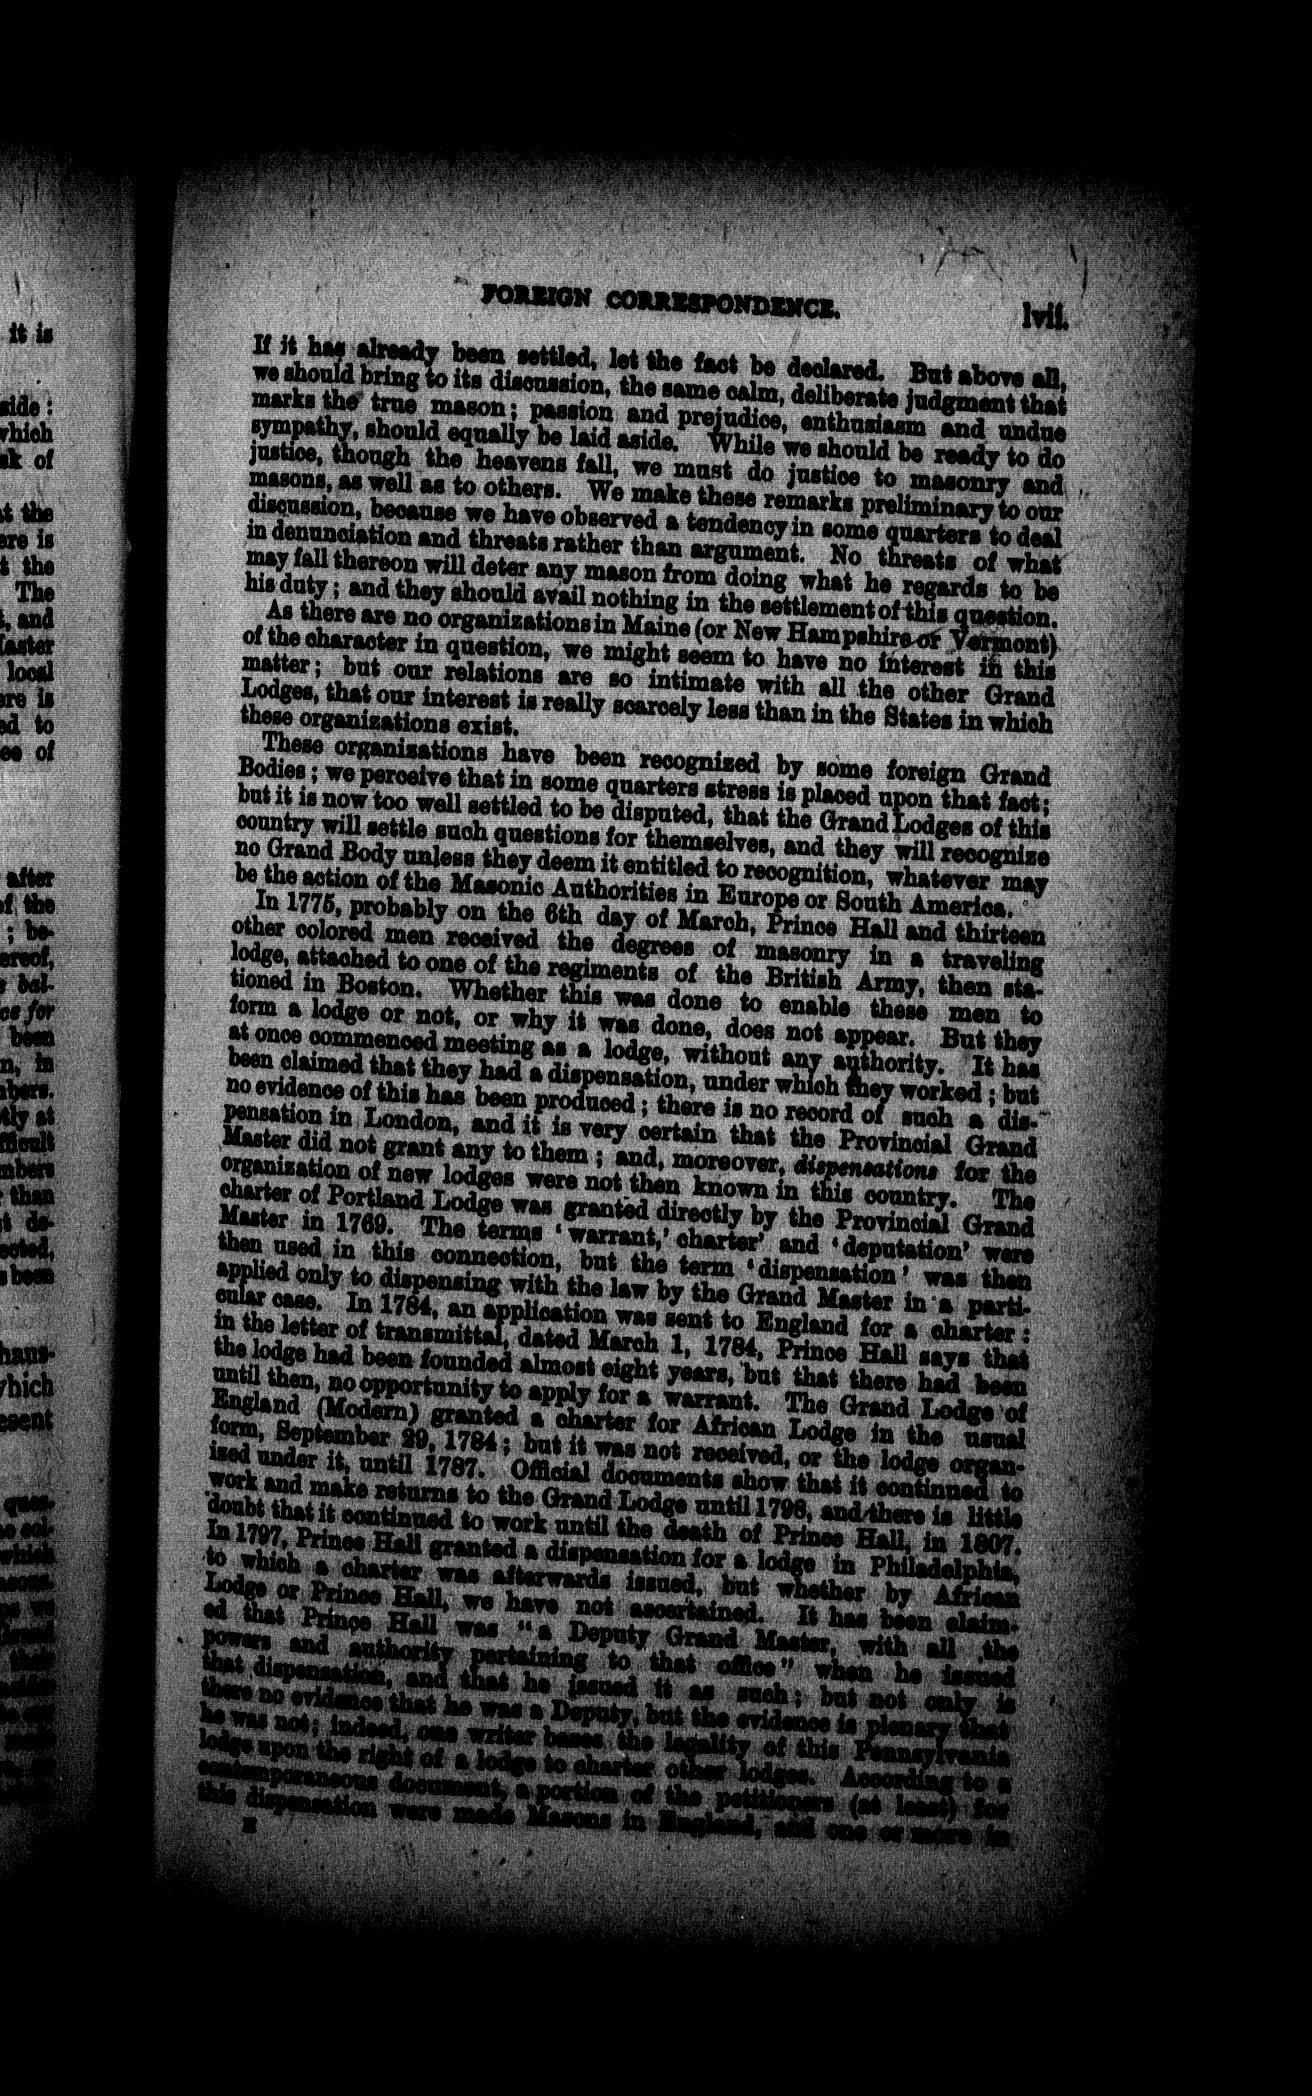 FOREIGN CORRESPONDENCE. lvii.
If it has already been settled, let the fact be declared. But above all,
we should bring to its discussion, the same calm, deliberate judgment that
marks the true mason; passion and prejudice, enthusiasm and undue
sympathy, should equally be laid aside. While we should be ready to do
justice, though the heavens fall, we must do justice to masonry and
masons, as well as to others. We make these remarks preliminary to our
discussion, because we have observed a tendency in some quarters to deal
in denunciation and threats rather than argument. No threats of what
may fall thereon will deter any mason from doing what he regards to be
his duty; and they should avail nothing in the settlement of this question.
As there are no organizations in Maine (or New Hampshire or Vermont)
of the character in question, we might seem to have no interest in this
matter; but our relations are so intimate with all the other Grand
Lodges, that our interest is really scarcely less than in the States in which
these organizations exist.
These organizations have been recognized by some foreign Grand
Bodies; we perceive that in some quarters stress is placed upon that fact;
but it is now too well settled to be disputed, that the Grand Lodges of this
country will settle such questions for themselves, and they will recognize
no Grand Body unless they deem it entitled to recognition, whatever may
be the action of the Masonic Authorities in Europe or South America.
In 1775, probably on the 6th day of March, Prince Hall and thirteen
other colored men received the degrees of masonry in a traveling
lodge, attached to one of the regiments of the British Army, then sta-
tioned in Boston. Whether this was done to enable these men to
form a lodge or not, or why it was done, does not appear. But they
at once commenced meeting as a lodge, without any authority. It has
been claimed that they had a dispensation, under which they worked; but
no evidence of this has been produced; there is no record of such a dis-
pensation in London, and it is very certain that the Provincial Grand
Master did not grant any to them; and, moreover, dispensations for the
organization of new lodges were not then known in this country. The
charter of Portland Lodge was granted directly by the Provincial Grand
Master in 1769. The terms 'warrant,' charter' and 'deputation' were
then used in this connection, but the term 'dispensation' was then
applied only to dispensing with the law by the Grand Master in a parti-
cular case. In 1784, an application was sent to England for a charter:
in the letter of transmittal, dated March 1, 1784, Prince Hall says that
the lodge had been founded almost eight years, but that there had been
until then, no opportunity to apply for a warrant. The Grand Lodge of
England (Modern) granted a charter for African Lodge in the usual
form, September 29, 1784; but it was not received, or the lodge organ-
ized under it, until 1787. Official documents show that it continued to
work and make returns to the Grand Lodge until 1798, and there is little
doubt that it continued to work until the death of Prince Hall, in 1807.
In 1797, Prince Hall granted a dispensation for a lodge in Philadelphia,
to which a charter was afterwards issued, but whether by African
Lodge or Prince Hall, we have not ascertained. It has been claim-
ed that Prince Hall was "a Deputy Grand Master, with all the
powers and authority pertaining to that office" when he issued
that dispensation, and that he issued it as such; but not only is
there no evidence that he was a Deputy, but the evidence is plenary that
he was not; indeed, one writer bases the legality of this Pennsylvania
lodge upon the right of a lodge to charter other lodges. According to a
contemporaneous document, a portion of the petitioners (at least) for
this dispensation were made Masons in England, and one or more in